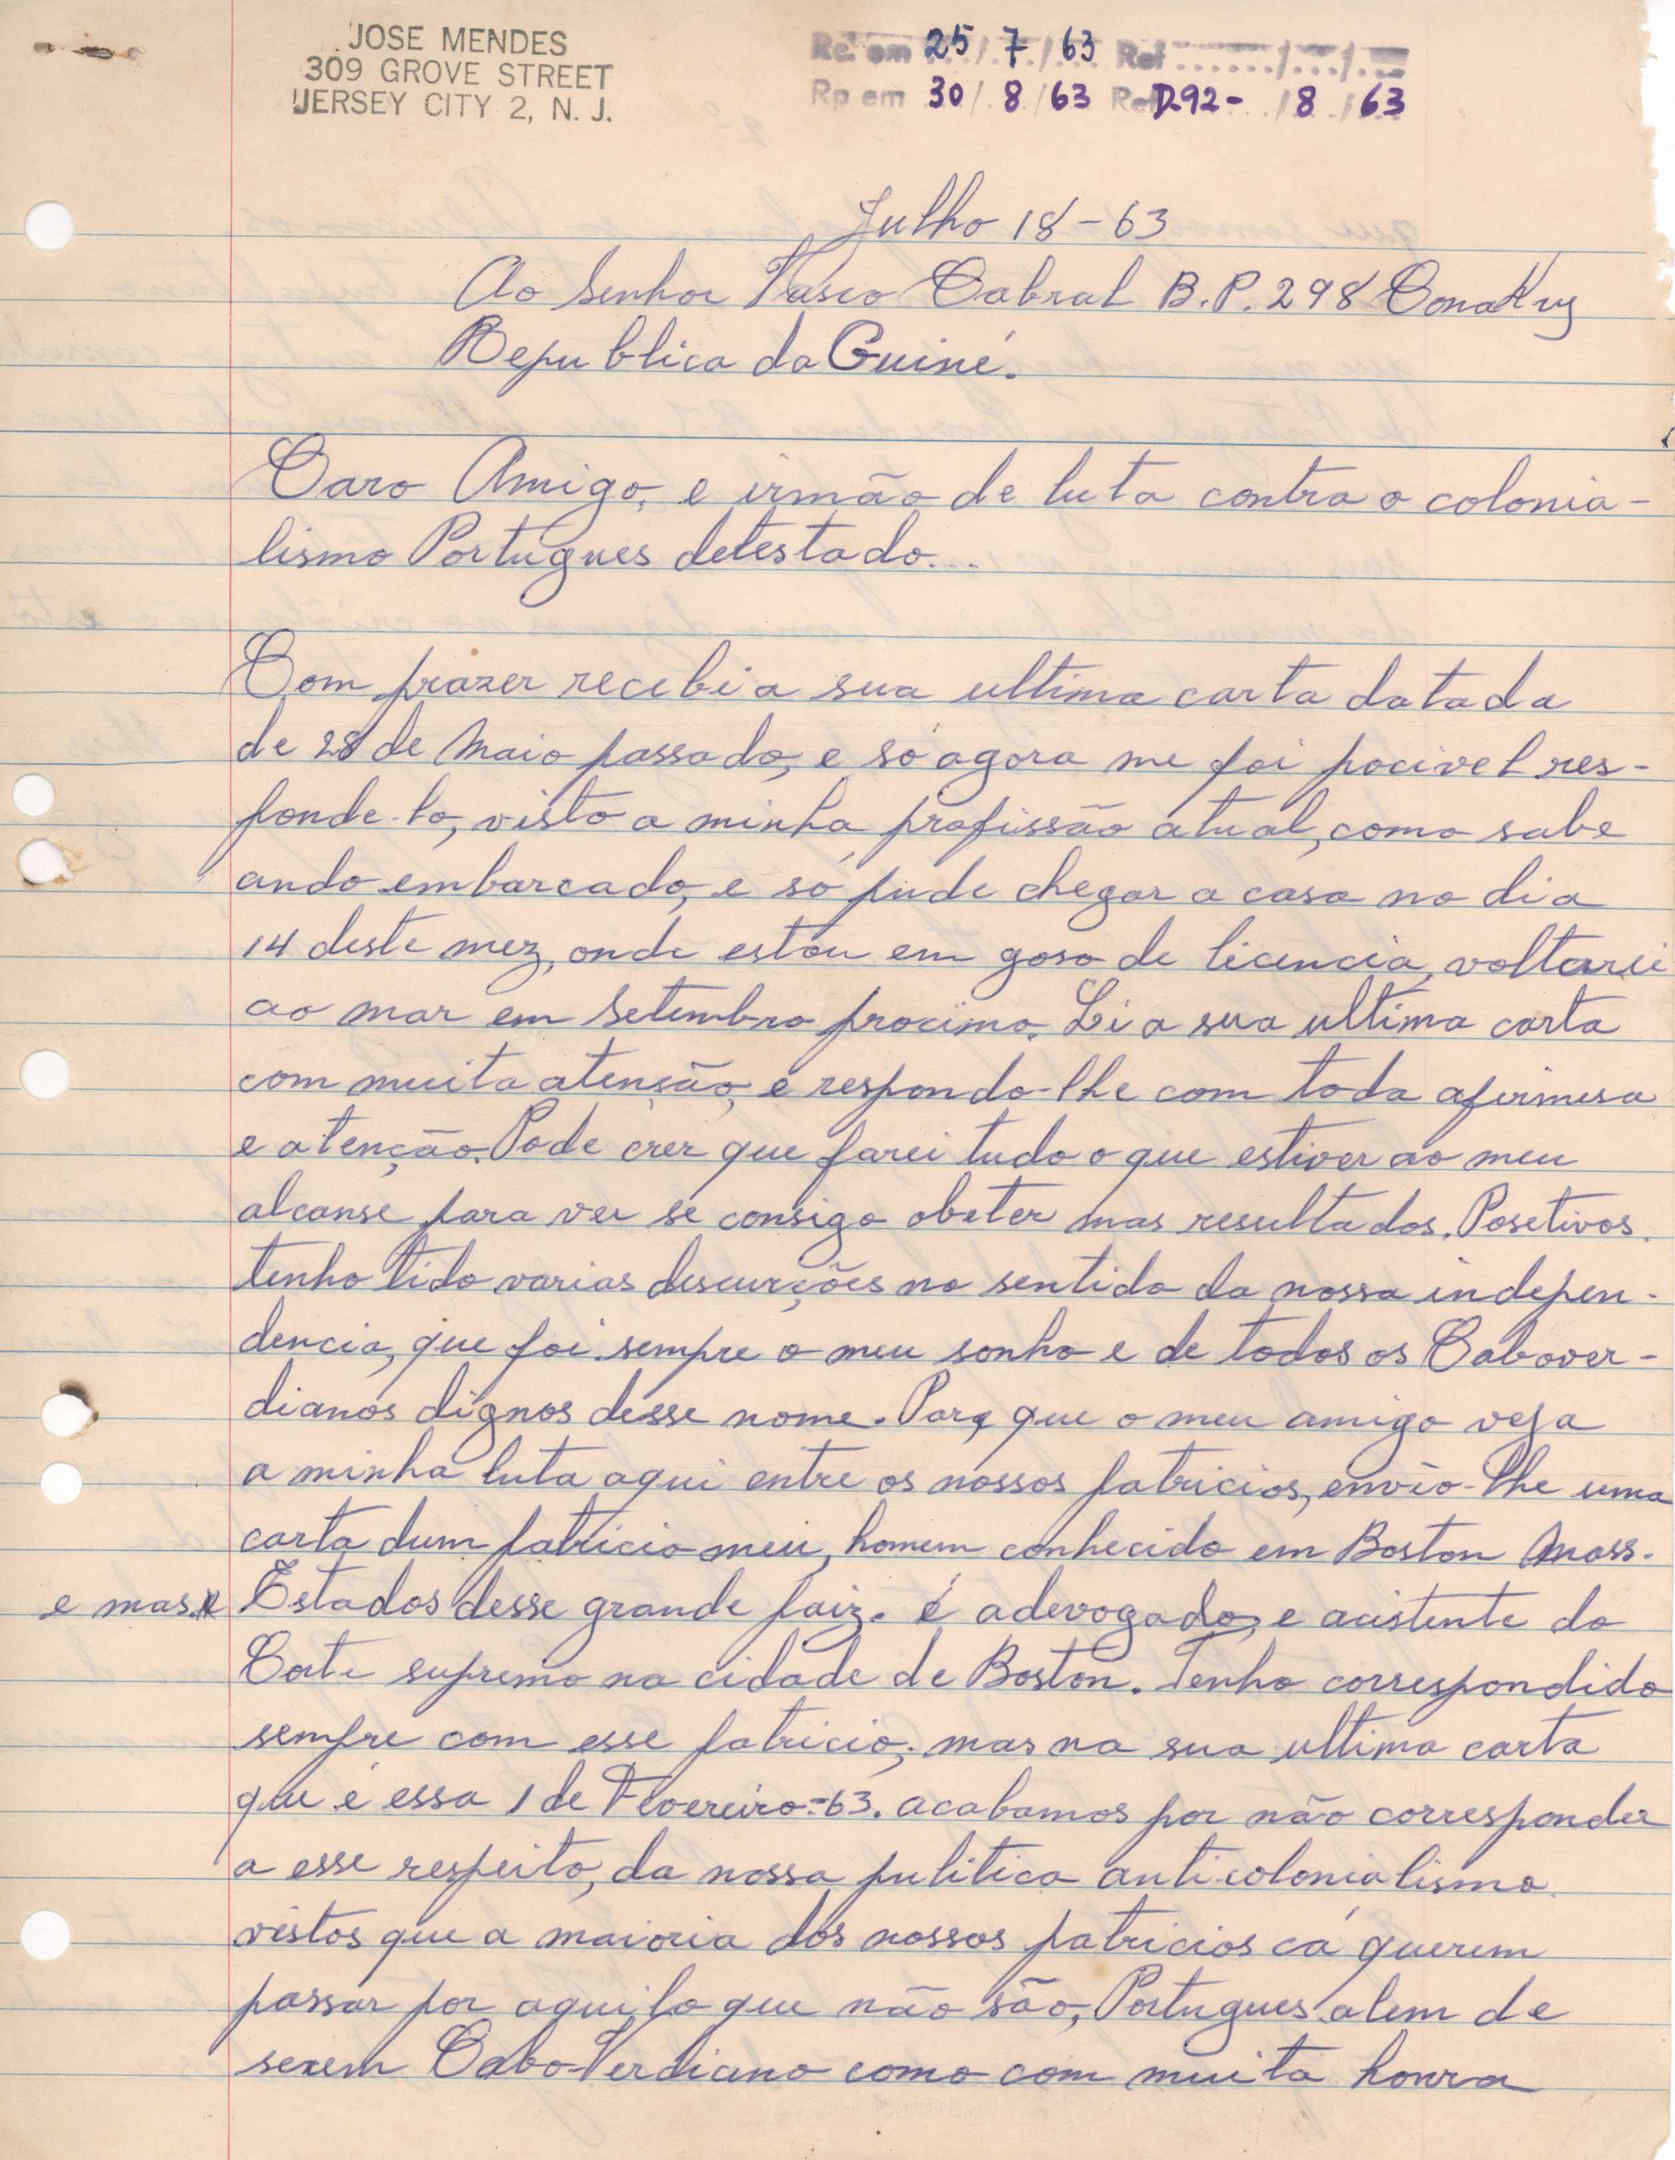 JOSE MENDES
309 GROVE STREET
JERSEY CITY 2, N. J.
Re. em 25/7/63 Ref ....../.../...
Rp em 30/8/63 Ref D.92-./8./63
Julho 18-63
Ao Senhor Vasco Cabral B.P. 298 Conakry
Republica da Guiné.
Caro Amigo, e irmão de luta contra o colonia-
lismo Portugues detestado...
Com prazer recebi a sua ultima carta datada
de 28 de Maio passado, e só agora me foi pocivel res-
ponde-lo, visto a minha profissão atual, como sabe
ando embarcado, e só pude chegar a casa no dia
14 deste mez, onde estou em goso de licencia, voltarei
ao mar em Setembro procimo. Li a sua ultima carta
com muita atenção, e respondo-lhe com toda afirmesa
e atenção. Pode crer que farei tudo o que estiver ao meu
alcanse para ver se consigo obeter mas resultados. Posetivos.
tenho tido varias descurções no sentido da nossa indepen-
dencia, que foi sempre o meu sonho e de todos os Cabover-
dianos dignos desse nome. Para que o meu amigo veja
a minha luta aqui entre os nossos patricios, envio-lhe uma
carta dum patricio meu, homem conhecido em Boston Mass.
e mas. Estados desse grande paiz. é adevogado, e acistente do
Corte supremo na cidade de Boston. Tenho correspondido
sempre com esse patricio, mas na sua ultima carta
que é essa 1 de Fevereiro-63. acabamos por não corresponder
a esse respeito, da nossa pulitica anti-colonialismo.
vistos que a maioria dos nossos patricios cá querem
passar por aquilo que não são, Portugues alem de
serem Cabo-Verdiano como com muita honra